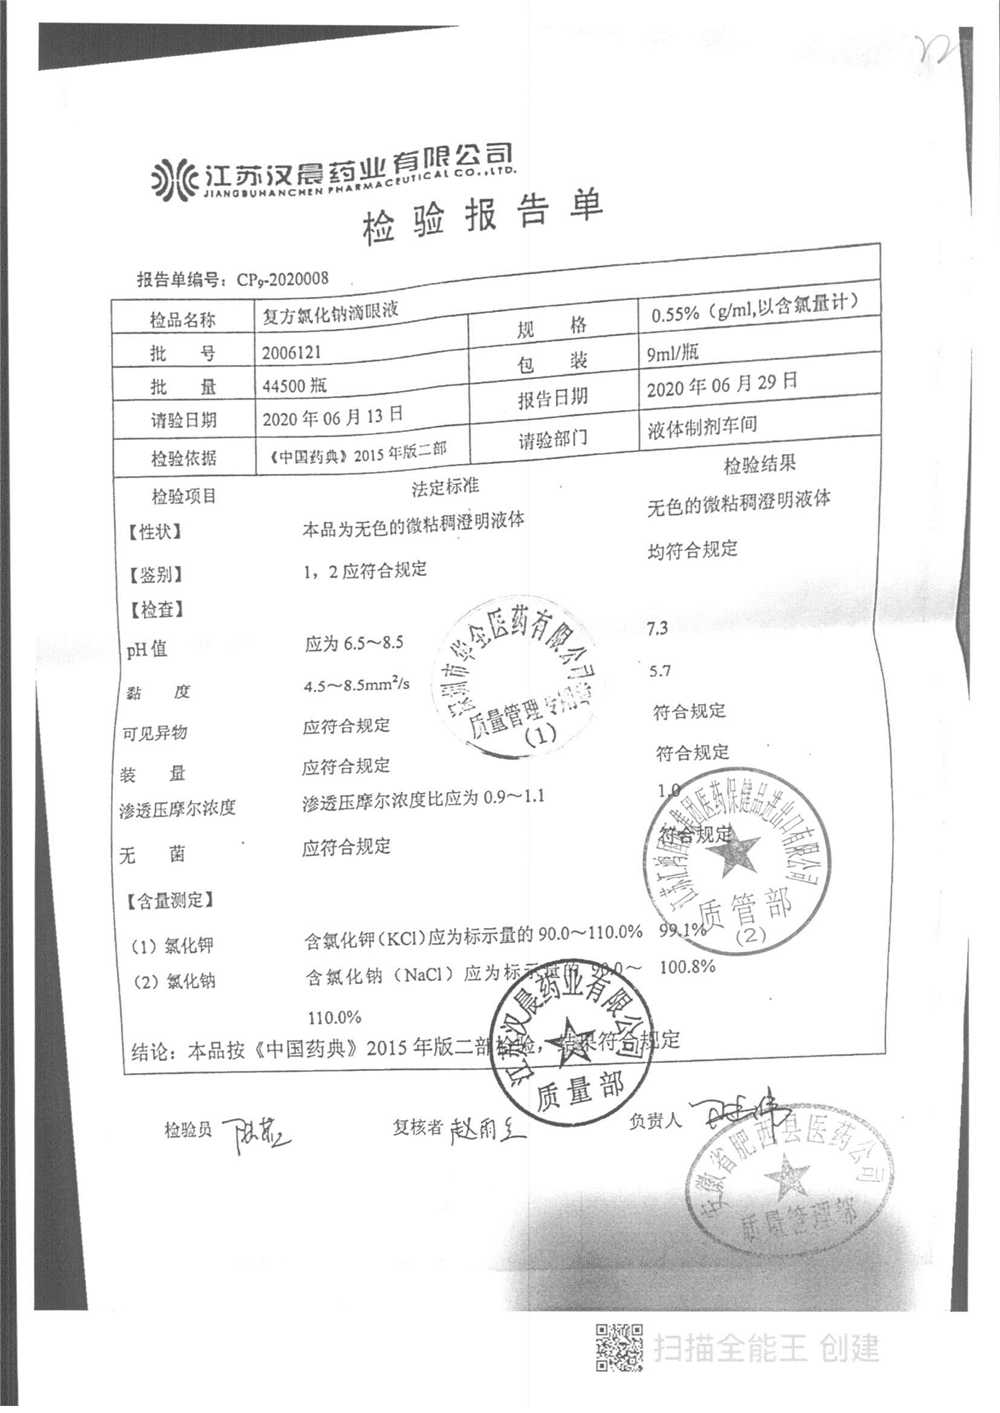 江苏汉晨药业有限公司
JIANGSUHANCHEN PHARMACEUTICAL CO.,LTD.
检验报告单
报告单编号：CP9-2020008
检品名称 复方氯化钠滴眼液 规 格 0.55%（g/ml,以含氯量计）
批 号 2006121 包 装 9ml/瓶
批 量 44500 瓶 报告日期 2020 年 06 月 29 日
请验日期 2020 年 06 月 13 日 请验部门 液体制剂车间
检验依据 《中国药典》2015 年版二部
检验项目 法定标准 检验结果
【性状】 本品为无色的微粘稠澄明液体 无色的微粘稠澄明液体
【鉴别】 1，2 应符合规定 均符合规定
【检查】
pH 值 应为 6.5～8.5 7.3
黏 度 4.5～8.5mm²/s 5.7
可见异物 应符合规定 符合规定
装 量 应符合规定 符合规定
渗透压摩尔浓度 渗透压摩尔浓度比应为 0.9～1.1 1.0
无 菌 应符合规定 符合规定
【含量测定】
（1）氯化钾 含氯化钾(KCl)应为标示量的 90.0～110.0% 99.1%
（2）氯化钠 含氯化钠（NaCl）应为标示量的 90.0～ 100.8%
110.0%
结论：本品按《中国药典》2015 年版二部检验，结果符合规定
检验员 复核者 赵雨 负责人
深圳市华全医药有限公司
质量管理专用章
(1)
医药保健品进出口有限公司
质管部
(2)
江苏汉晨药业有限公司
质量部
安徽省肥西县医药公司
质量管理部
扫描全能王 创建